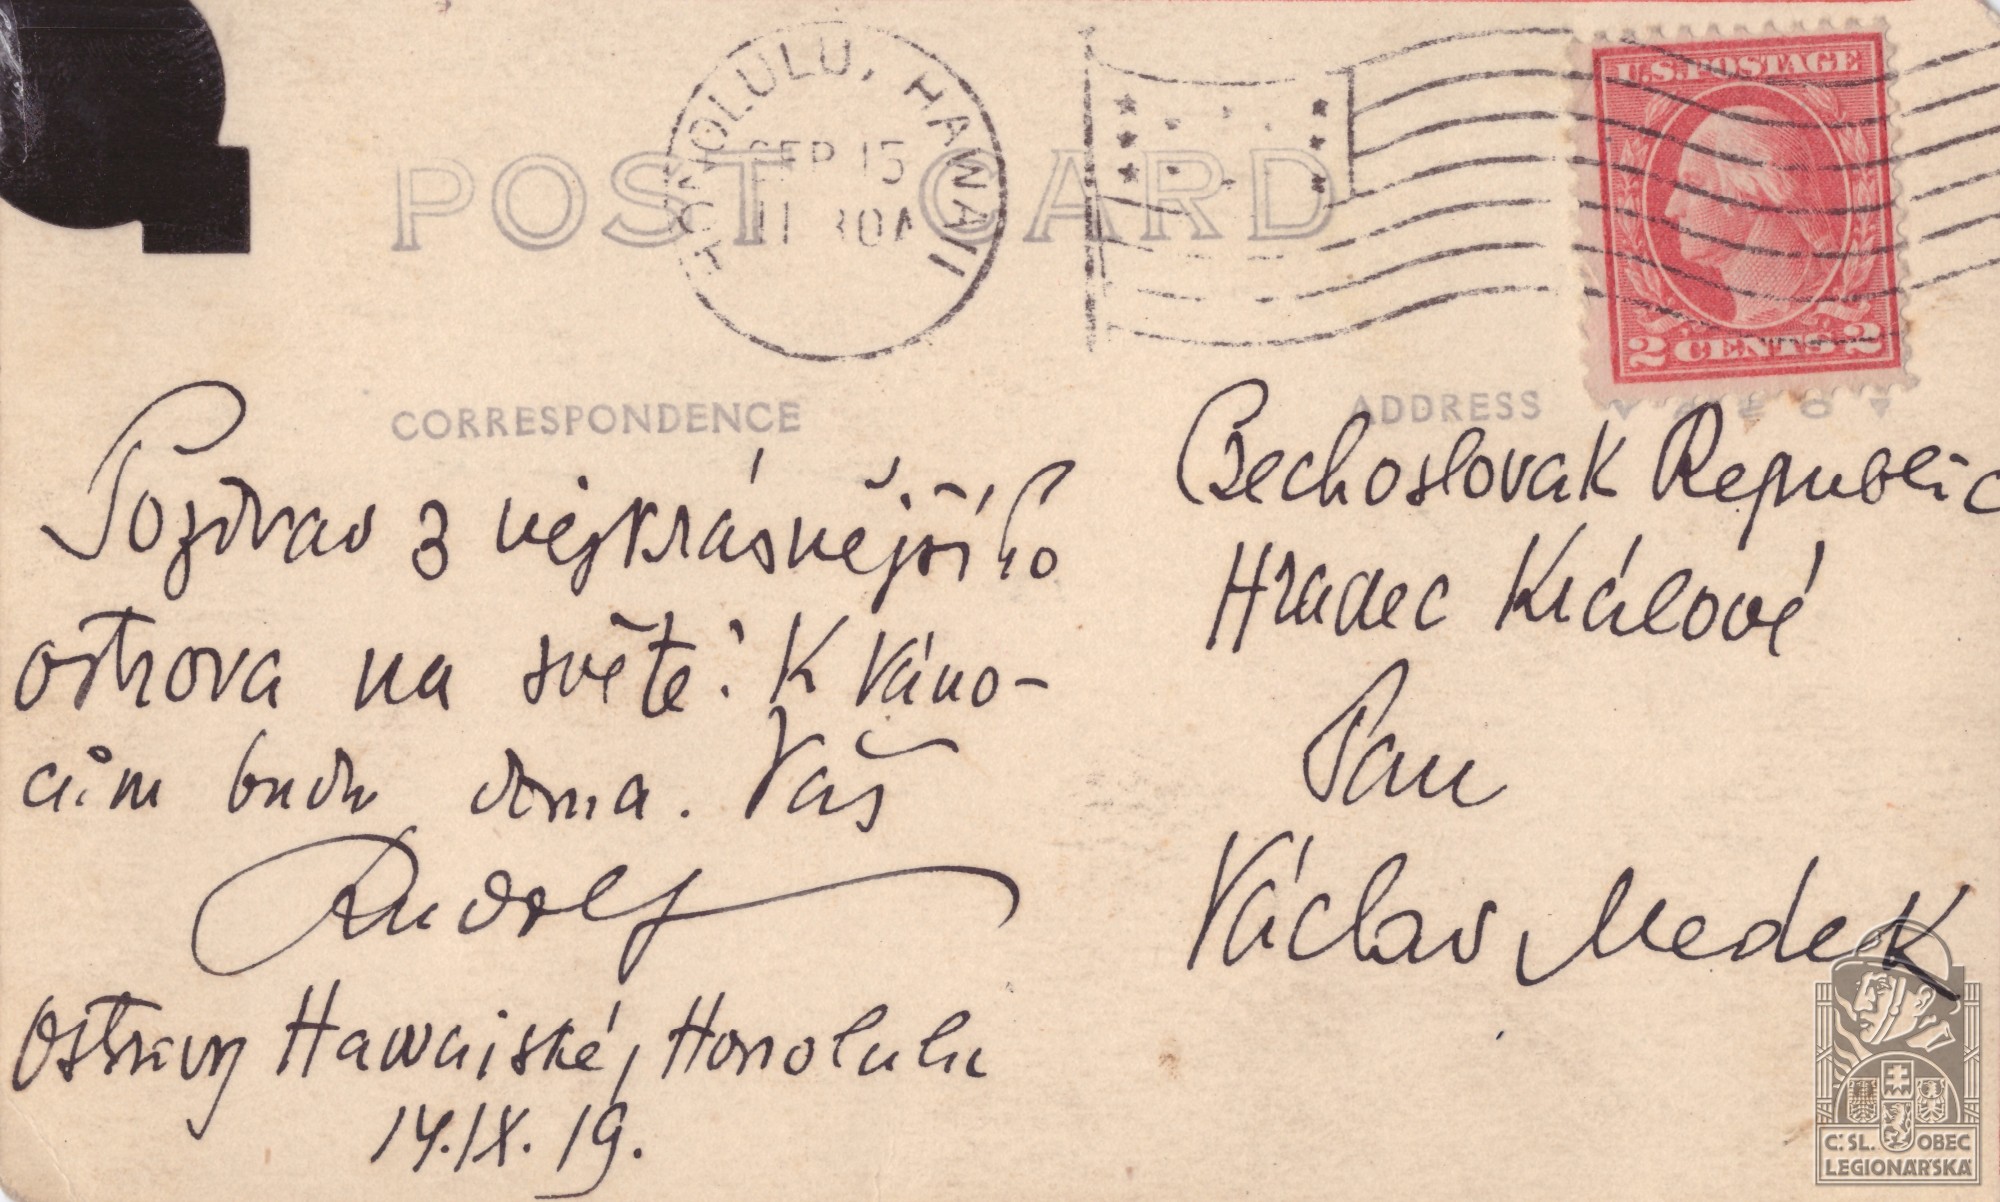 HONOLULU, HAWAII
SEP 15
11 30A
U.S. POSTAGE
2 CENTS 2
POST CARD
CORRESPONDENCE
ADDRESS
Pozdrav z nejkrásnějšího
ostrova na světě! K Váno-
cům budu doma. Váš
Rudolf
Ostrovy Hawaiské, Honolulu
14.IX.19.
Czechoslovak Republic
Hradec Králové
Pan
Václav Medek
Č.SL. OBEC
LEGIONÁŘSKÁ